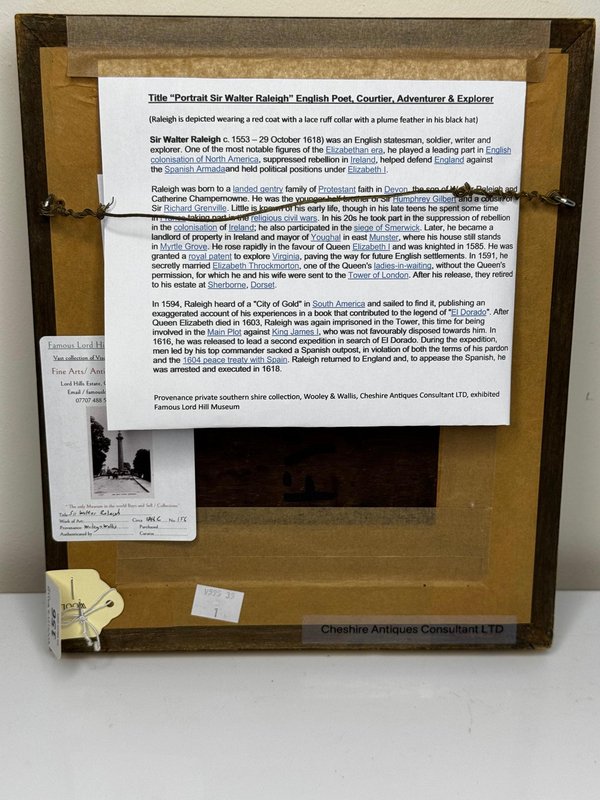 Title "Portrait Sir Walter Raleigh" English Poet, Courtier, Adventurer & Explorer
(Raleigh is depicted wearing a red coat with a lace ruff collar with a plume feather in his black hat)
Sir Walter Raleigh c. 1553 – 29 October 1618) was an English statesman, soldier, writer and
explorer. One of the most notable figures of the Elizabethan era, he played a leading part in English
colonisation of North America, suppressed rebellion in Ireland, helped defend England against
the Spanish Armadaand held political positions under Elizabeth I.
Raleigh was born to a landed gentry family of Protestant faith in Devon, the son of Walter Raleigh and
Catherine Champernowne. He was the younger half-brother of Sir Humphrey Gilbert and a cousin of
Sir Richard Grenville. Little is known of his early life, though in his late teens he spent some time
in France taking part in the religious civil wars. In his 20s he took part in the suppression of rebellion
in the colonisation of Ireland; he also participated in the siege of Smerwick. Later, he became a
landlord of property in Ireland and mayor of Youghal in east Munster, where his house still stands
in Myrtle Grove. He rose rapidly in the favour of Queen Elizabeth I and was knighted in 1585. He was
granted a royal patent to explore Virginia, paving the way for future English settlements. In 1591, he
secretly married Elizabeth Throckmorton, one of the Queen's ladies-in-waiting, without the Queen's
permission, for which he and his wife were sent to the Tower of London. After his release, they retired
to his estate at Sherborne, Dorset.
In 1594, Raleigh heard of a "City of Gold" in South America and sailed to find it, publishing an
exaggerated account of his experiences in a book that contributed to the legend of "El Dorado". After
Queen Elizabeth died in 1603, Raleigh was again imprisoned in the Tower, this time for being
involved in the Main Plot against King James I, who was not favourably disposed towards him. In
1616, he was released to lead a second expedition in search of El Dorado. During the expedition,
men led by his top commander sacked a Spanish outpost, in violation of both the terms of his pardon
and the 1604 peace treaty with Spain. Raleigh returned to England and, to appease the Spanish, he
was arrested and executed in 1618.
Provenance private southern shire collection, Wooley & Wallis, Cheshire Antiques Consultant LTD, exhibited
Famous Lord Hill Museum
Famous Lord Hi
Vast collection of
Fine Arts/ An
Lord Hills Estate,
Email / famousl
07707 488 5
"The only Museum in the world Buys and Sell / Collections"
Title Sir Walter Raleigh
Work of Art Circa No. 156
Provenance Purchased
Authenticated by Curator
WOOL
156
1
Cheshire Antiques Consultant LTD